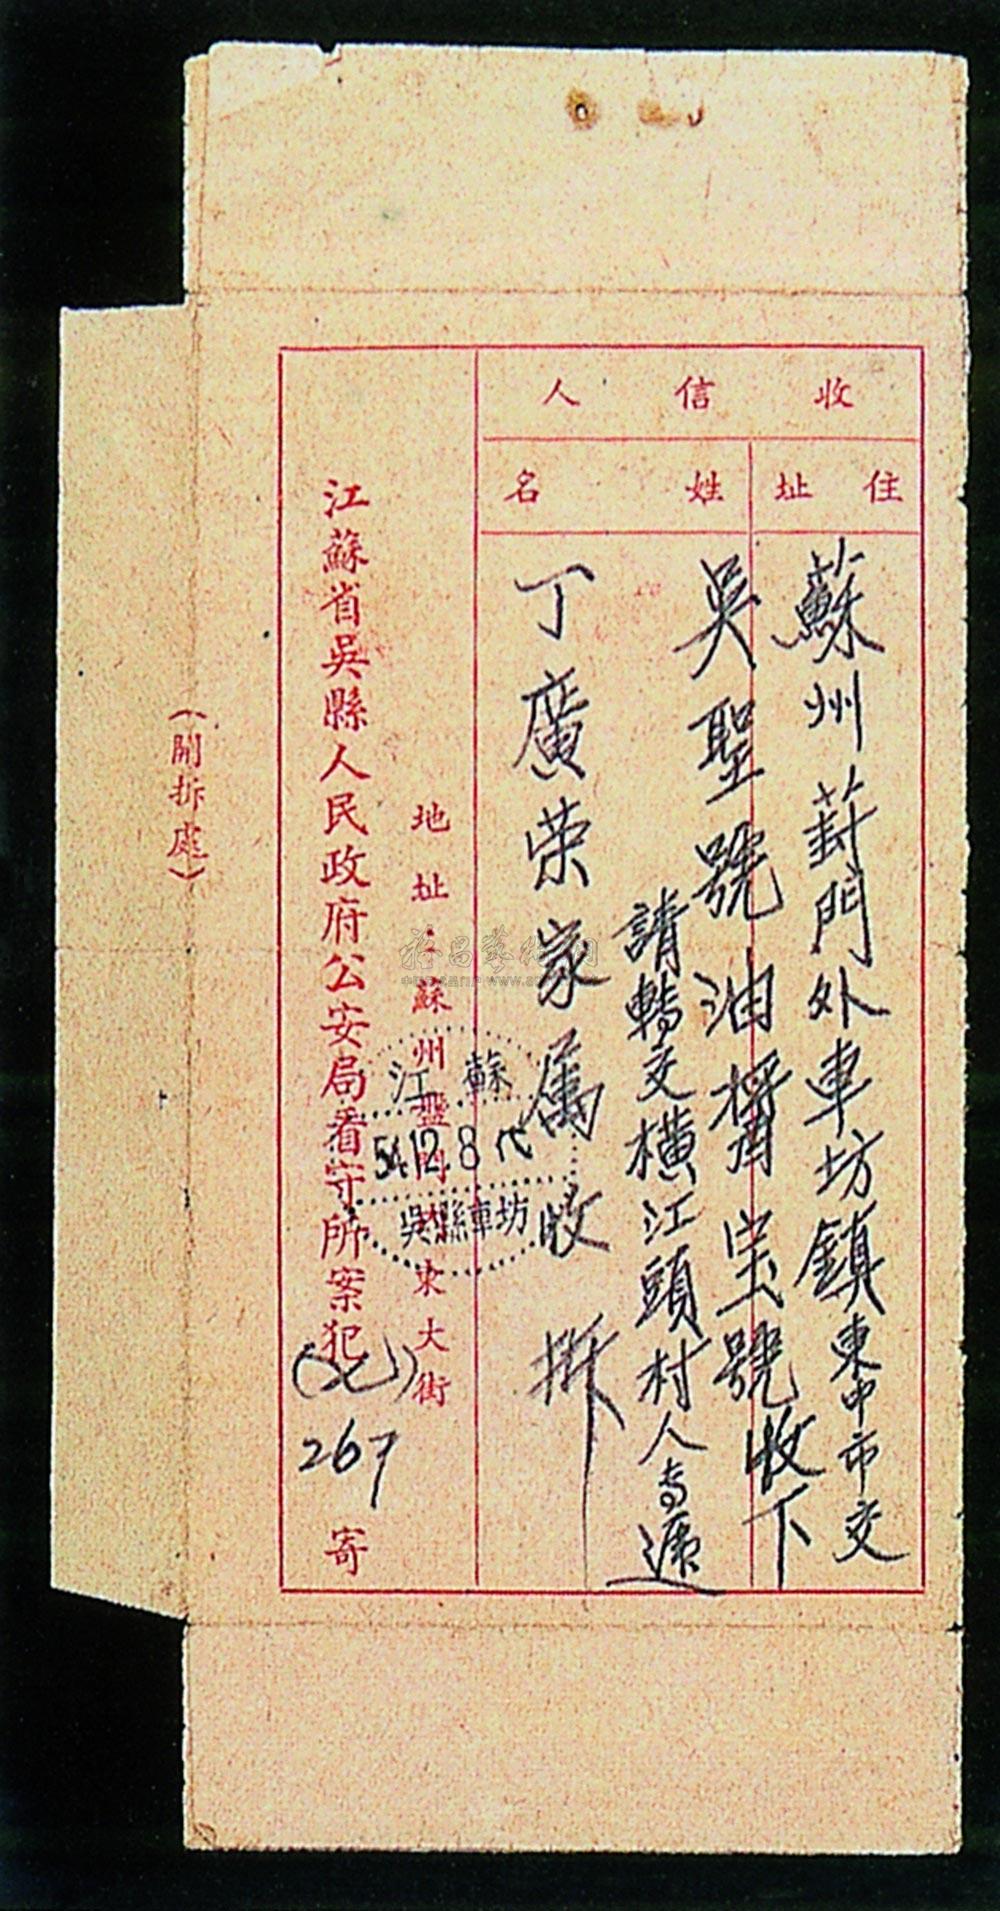 收信人
住址
姓名
蘇州葑門外車坊鎮東中市交
吳聖號油醬宝號收下
請轉交横江頭村人專遞
丁廣荣家属收拆
地址：蘇州盤門東大街
江蘇省吳縣人民政府公安局看守所案犯
267
寄
江蘇
54.12.8
吳縣車坊
（開拆處）